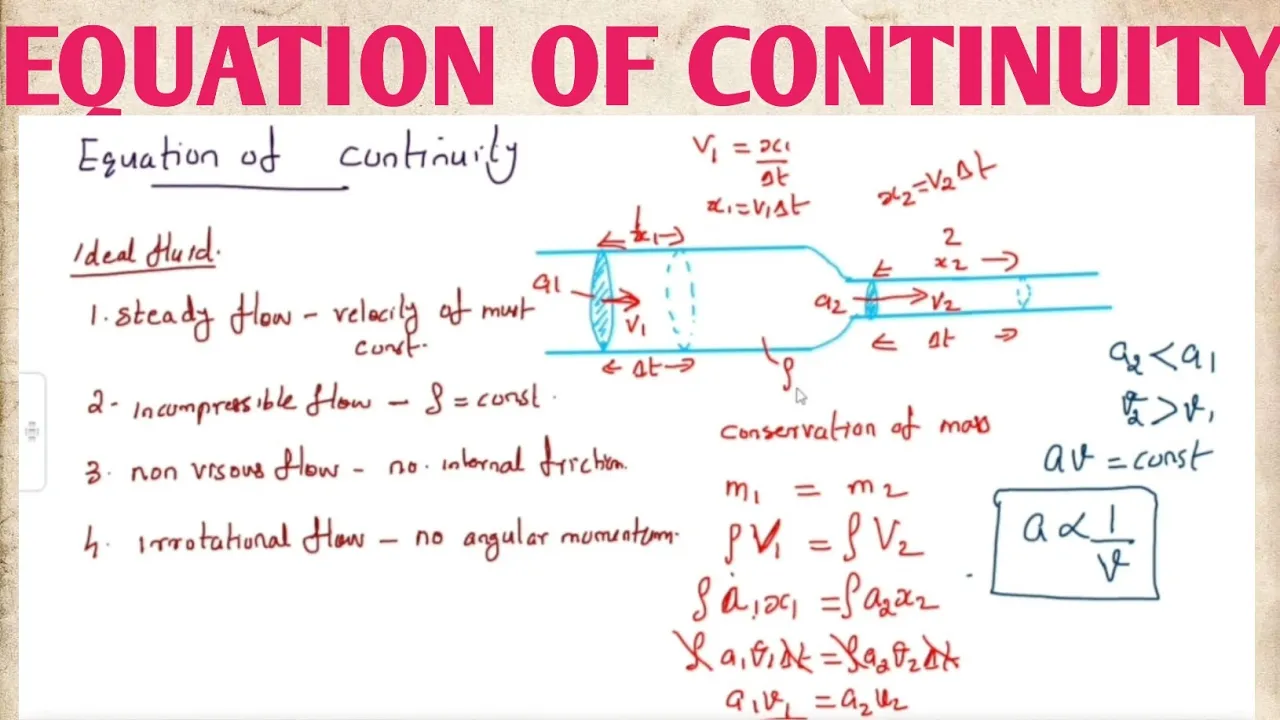 EQUATION OF CONTINUITY
Equation of continuity
Ideal fluid.
1. steady flow – velocity of must
const.
2- incompressible flow – ρ = const.
3. non visous flow – no. internal friction.
4. irrotational flow – no angular momentum.
V1 = x1/Δt
x1 = v1Δt
x2 = v2Δt
1
x1
2
x2
a1
V1
a2
V2
Δt
Δt
ρ
conservation of mass
m1 = m2
ρV1 = ρV2
ρa1x1 = ρa2x2
ρa1v1Δt = ρa2v2Δt
a1v1 = a2v2
a2 < a1
v2 > v1
av = const
a ∝ 1/v